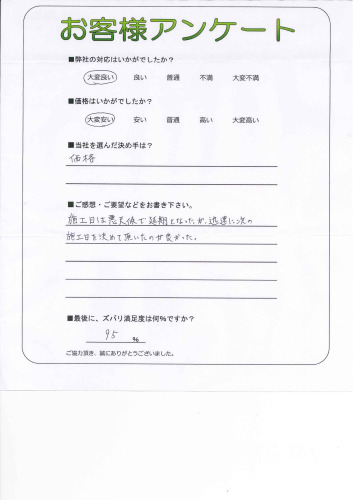 お客様アンケート
■弊社の対応はいかがでしたか？
大変良い 良い 普通 不満 大変不満
■価格はいかがでしたか？
大変安い 安い 普通 高い 大変高い
■当社を選んだ決め手は？
価格
■ご感想・ご要望などをお書き下さい。
施工日は悪天候で延期となったが、迅速に次の
施工日を決めて頂いたのが良かった。
■最後に、ズバリ満足度は何％ですか？
95 ％
ご協力頂き、誠にありがとうございました。